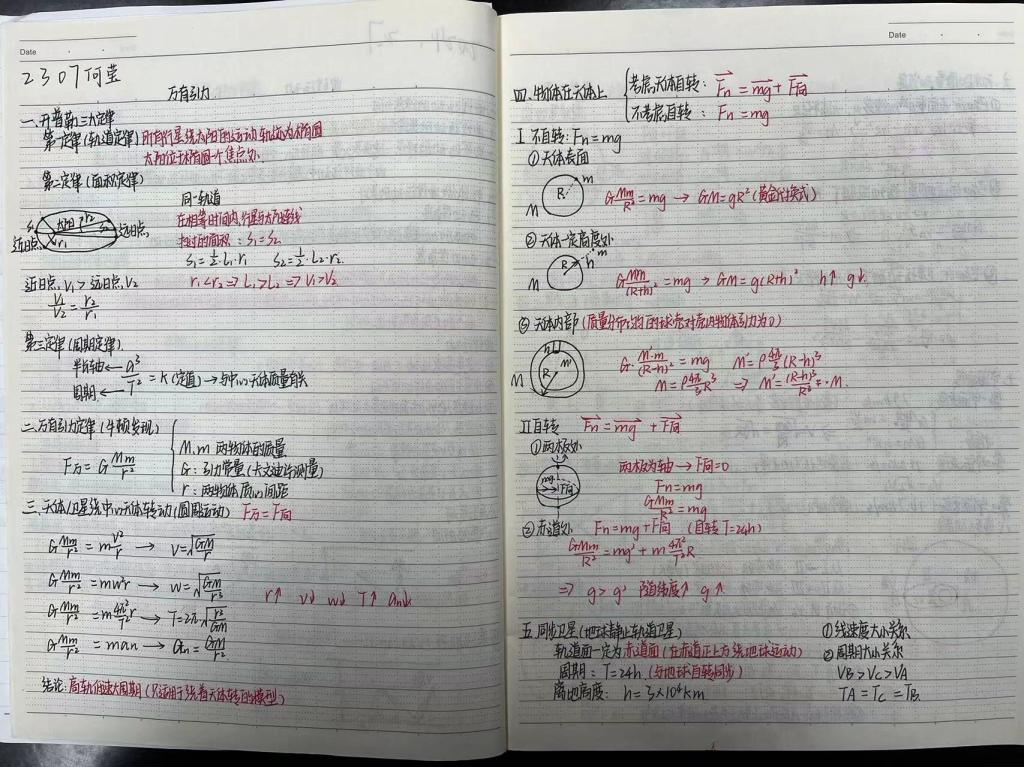 Date
2307何莹
万有引力
一、开普勒三大定律
第一定律(轨道定律)所有行星绕太阳的运动轨迹为椭圆
太阳位于椭圆一个焦点处
第二定律(面积定律)
同一轨道
在相等时间内,行星与太阳连线
扫过的面积:S₁=S₂
S₁=½·L₁·r₁ S₂=½·L₂·r₂
近日点 太阳 r₂ r₁ S₁ S₂ 远日点
近日点V₁>远日点V₂ r₁<r₂⇒L₁>L₂⇒V₁>V₂
V₁/V₂=r₂/r₁
第三定律(周期定律)
半长轴←a³/T²=K(定值)→与中心天体质量有关
周期←
二、万有引力定律(牛顿发现)
F万=G Mm/r²
M.m 两物体的质量
G:引力常量(卡文迪许测量)
r:两物体质心间距
三、天体/卫星绕中心天体转动(圆周运动) F万=F向
G Mm/r²=m v²/r → v=√(GM/r)
G Mm/r²=mw²r → w=√(GM/r³)
G Mm/r²=m 4π²/T² r → T=2π√(r³/GM)
G Mm/r²=man → an=GM/r²
r↑ v↓ w↓ T↑ an↓
结论:高轨低速大周期(只适用于绕着天体转的模型)
Date
四、物体在天体上
考虑天体自转:Fn=mg+F向
不考虑自转:Fn=mg
Ⅰ不自转:Fn=mg
①天体表面
R m M
G Mm/R²=mg → GM=gR²(黄金代换式)
②天体一定高度处
R h m M
G Mm/(R+h)²=mg → GM=g(R+h)² h↑ g↓
③天体内部(质量分布均匀的球壳对壳内物体引力为0)
h M' R M
G·M'·m/(R-h)²=mg M'=ρ 4π/3 (R-h)³
M=ρ 4π/3 R³ ⇒ M'=(R-h)³/R³·M
Ⅱ自转 Fn=mg+F向
①两极处
mg F向
两极为轴→F向=0
Fn=mg
GMm/R²=mg
②赤道处 Fn=mg+F向 (自转T=24h)
GMm/R²=mg'+m 4π²/T² R
⇒ g>g' 随纬度↑ g↑
五、同步卫星(地球静止轨道卫星)
轨道面一定为赤道面(在赤道正上方绕地球运动)
周期:T=24h(与地球自转同步)
离地高度:h=3×10⁴km
①线速度大小关系
②周期大小关系
VB>VC>VA
TA=TC=TB